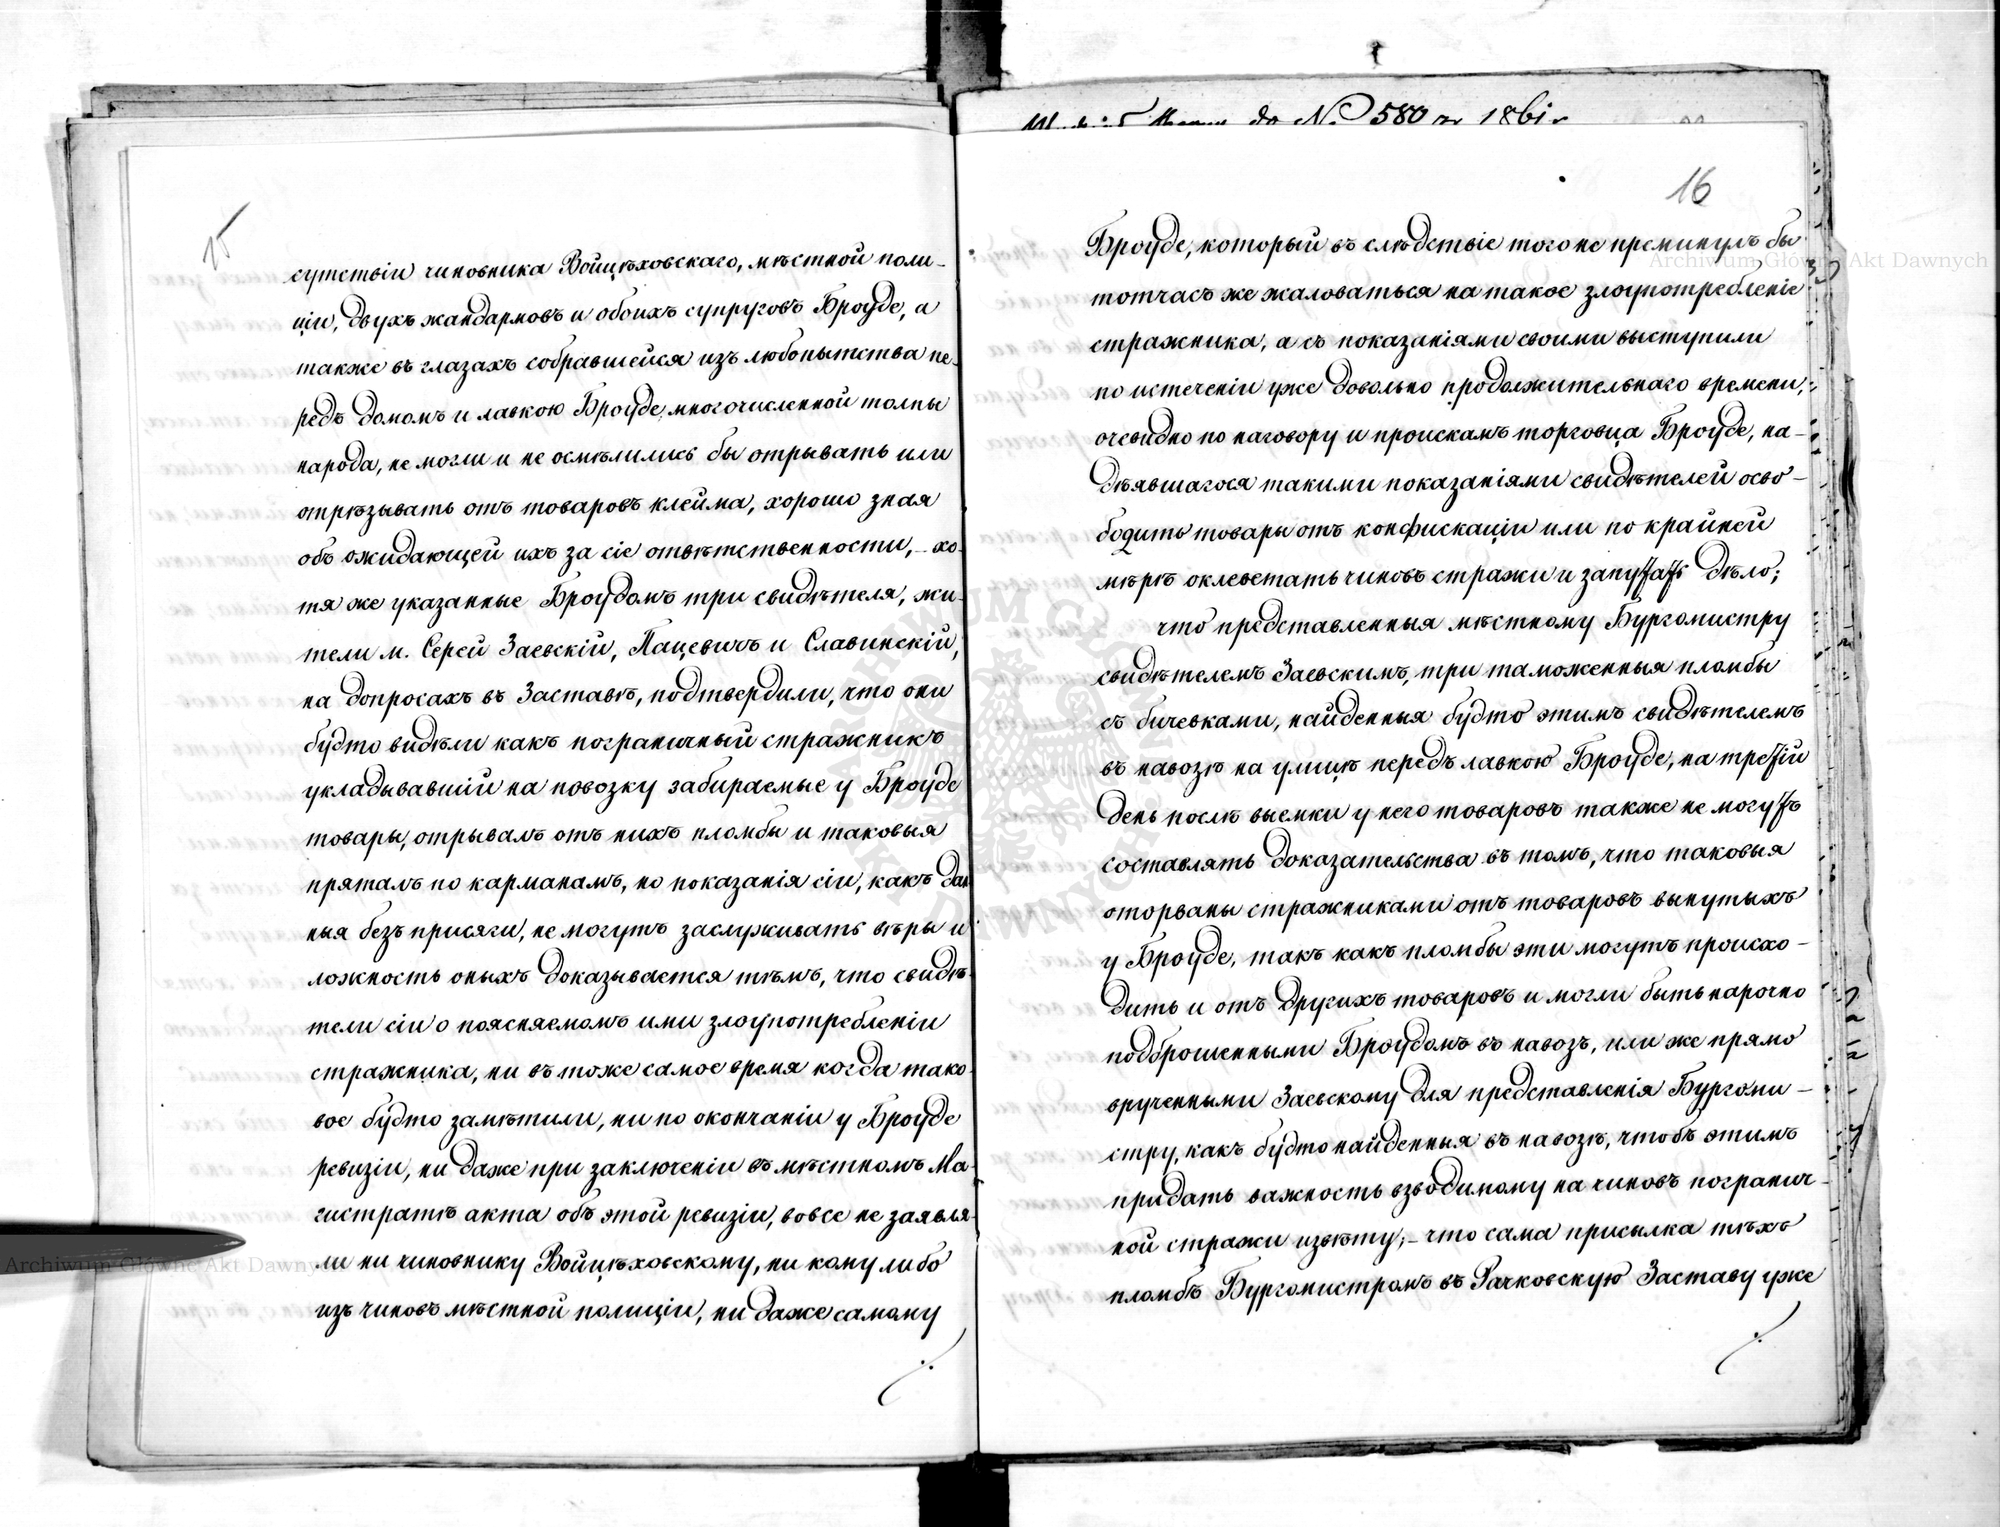 15
сутствіи чиновника Войцѣховскаго, мѣстной поли-
ціи, двухъ жандармовъ и обоихъ супруговъ Броуде, а
также въ глазахъ собравшейся изъ любопытства пе-
редъ домомъ и лавкою Броуде, многочисленной толпы
народа, не могли и не осмѣлились бы отрывать или
отрѣзывать отъ товаровъ клейма, хорошо зная
объ ожидающей ихъ за сіе отвѣтственности, - хо-
тя же указанные Броудомъ три свидѣтеля, жи-
тели м. Серей Заевскій, Пацевичъ и Славинскій,
на допросахъ въ Заставѣ, подтвердили, что они
будто видѣли какъ пограничный стражникъ
укладывавшій на повозку забираемые у Броуде
товары, отрывалъ отъ нихъ пломбы и таковыя
пряталъ по карманамъ, но показанія сіи, какъ дан
ныя безъ присяги, не могутъ заслуживать вѣры и
ложность оныхъ доказывается тѣмъ, что свидѣ-
тели сіи о поясняемомъ ими злоупотребленіи
стражника, ни въ тоже самое время когда тако-
вое будто замѣтили, ни по окончаніи у Броуде
ревизіи, ни даже при заключеніи въ мѣстномъ Ма-
гистратѣ акта объ этой ревизіи, вовсе не заявля-
ли ни чиновнику Войцѣховскому, ни кому либо
изъ чиновъ мѣстной полиціи, ни даже самому
./.
до № 580 1861
16
Броуде, который въ слѣдствіе того не преминулъ бы
тотчасъ же жаловаться на такое злоупотребленіе
стражника, а съ показаніями своими выступили
по истеченіи уже довольно продолжительнаго времени,
очевидно по наговору и проискамъ торговца Броуде, на-
дѣявшагося такими показаніями свидѣтелей осво-
бодить товары отъ конфискаціи или по крайней
мѣрѣ оклеветать чиновъ стражи и запутать дѣло;
что представленныя мѣстному Бургомистру
свидѣтелемъ Заевскимъ, три таможенныя пломбы
съ бичевками, найденныя будто этимъ свидѣтелемъ
въ навозѣ на улицѣ передъ лавкою Броуде, на третій
день послѣ выемки у него товаровъ также не могутъ
составлять доказательства въ томъ, что таковыя
оторваны стражниками отъ товаровъ вынутыхъ
у Броуде, такъ какъ пломбы эти могутъ происхо-
дить и отъ другихъ товаровъ и могли быть нарочно
подброшенными Броудомъ въ навозъ, или же прямо
врученными Заевскому для представленія Бургоми-
стру, какъ будто найденныя въ навозѣ, чтобъ этимъ
придать важность взводимому на чиновъ погранич-
ной стражи извѣту; - что сама присылка тѣхъ
пломбъ Бургомистромъ въ Рачковскую Заставу уже
./.